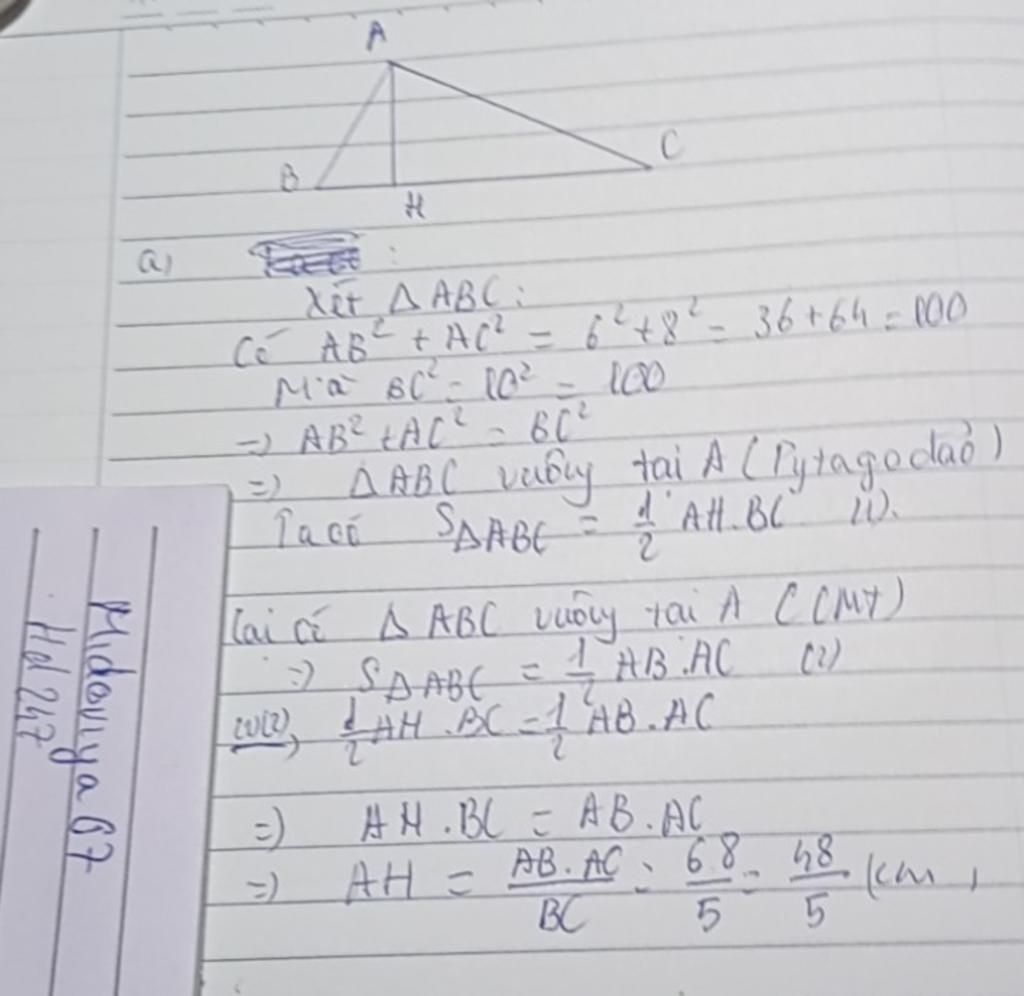 A
B
C
H
a)
Xét ΔABC:
Có AB² + AC² = 6² + 8² = 36 + 64 = 100
Mà BC² = 10² = 100
=> AB² + AC² = BC²
=> ΔABC vuông tại A (Pytago đảo)
Ta có SΔABC = 1/2 AH.BC (1).
Lại có ΔABC vuông tại A (CMT)
=> SΔABC = 1/2 AB.AC (2)
(1)(2), 1/2 AH.BC = 1/2 AB.AC
=> AH.BC = AB.AC
=> AH = AB.AC/BC = 6.8/5 = 48/5 (cm)
Midoriya67
Hd247